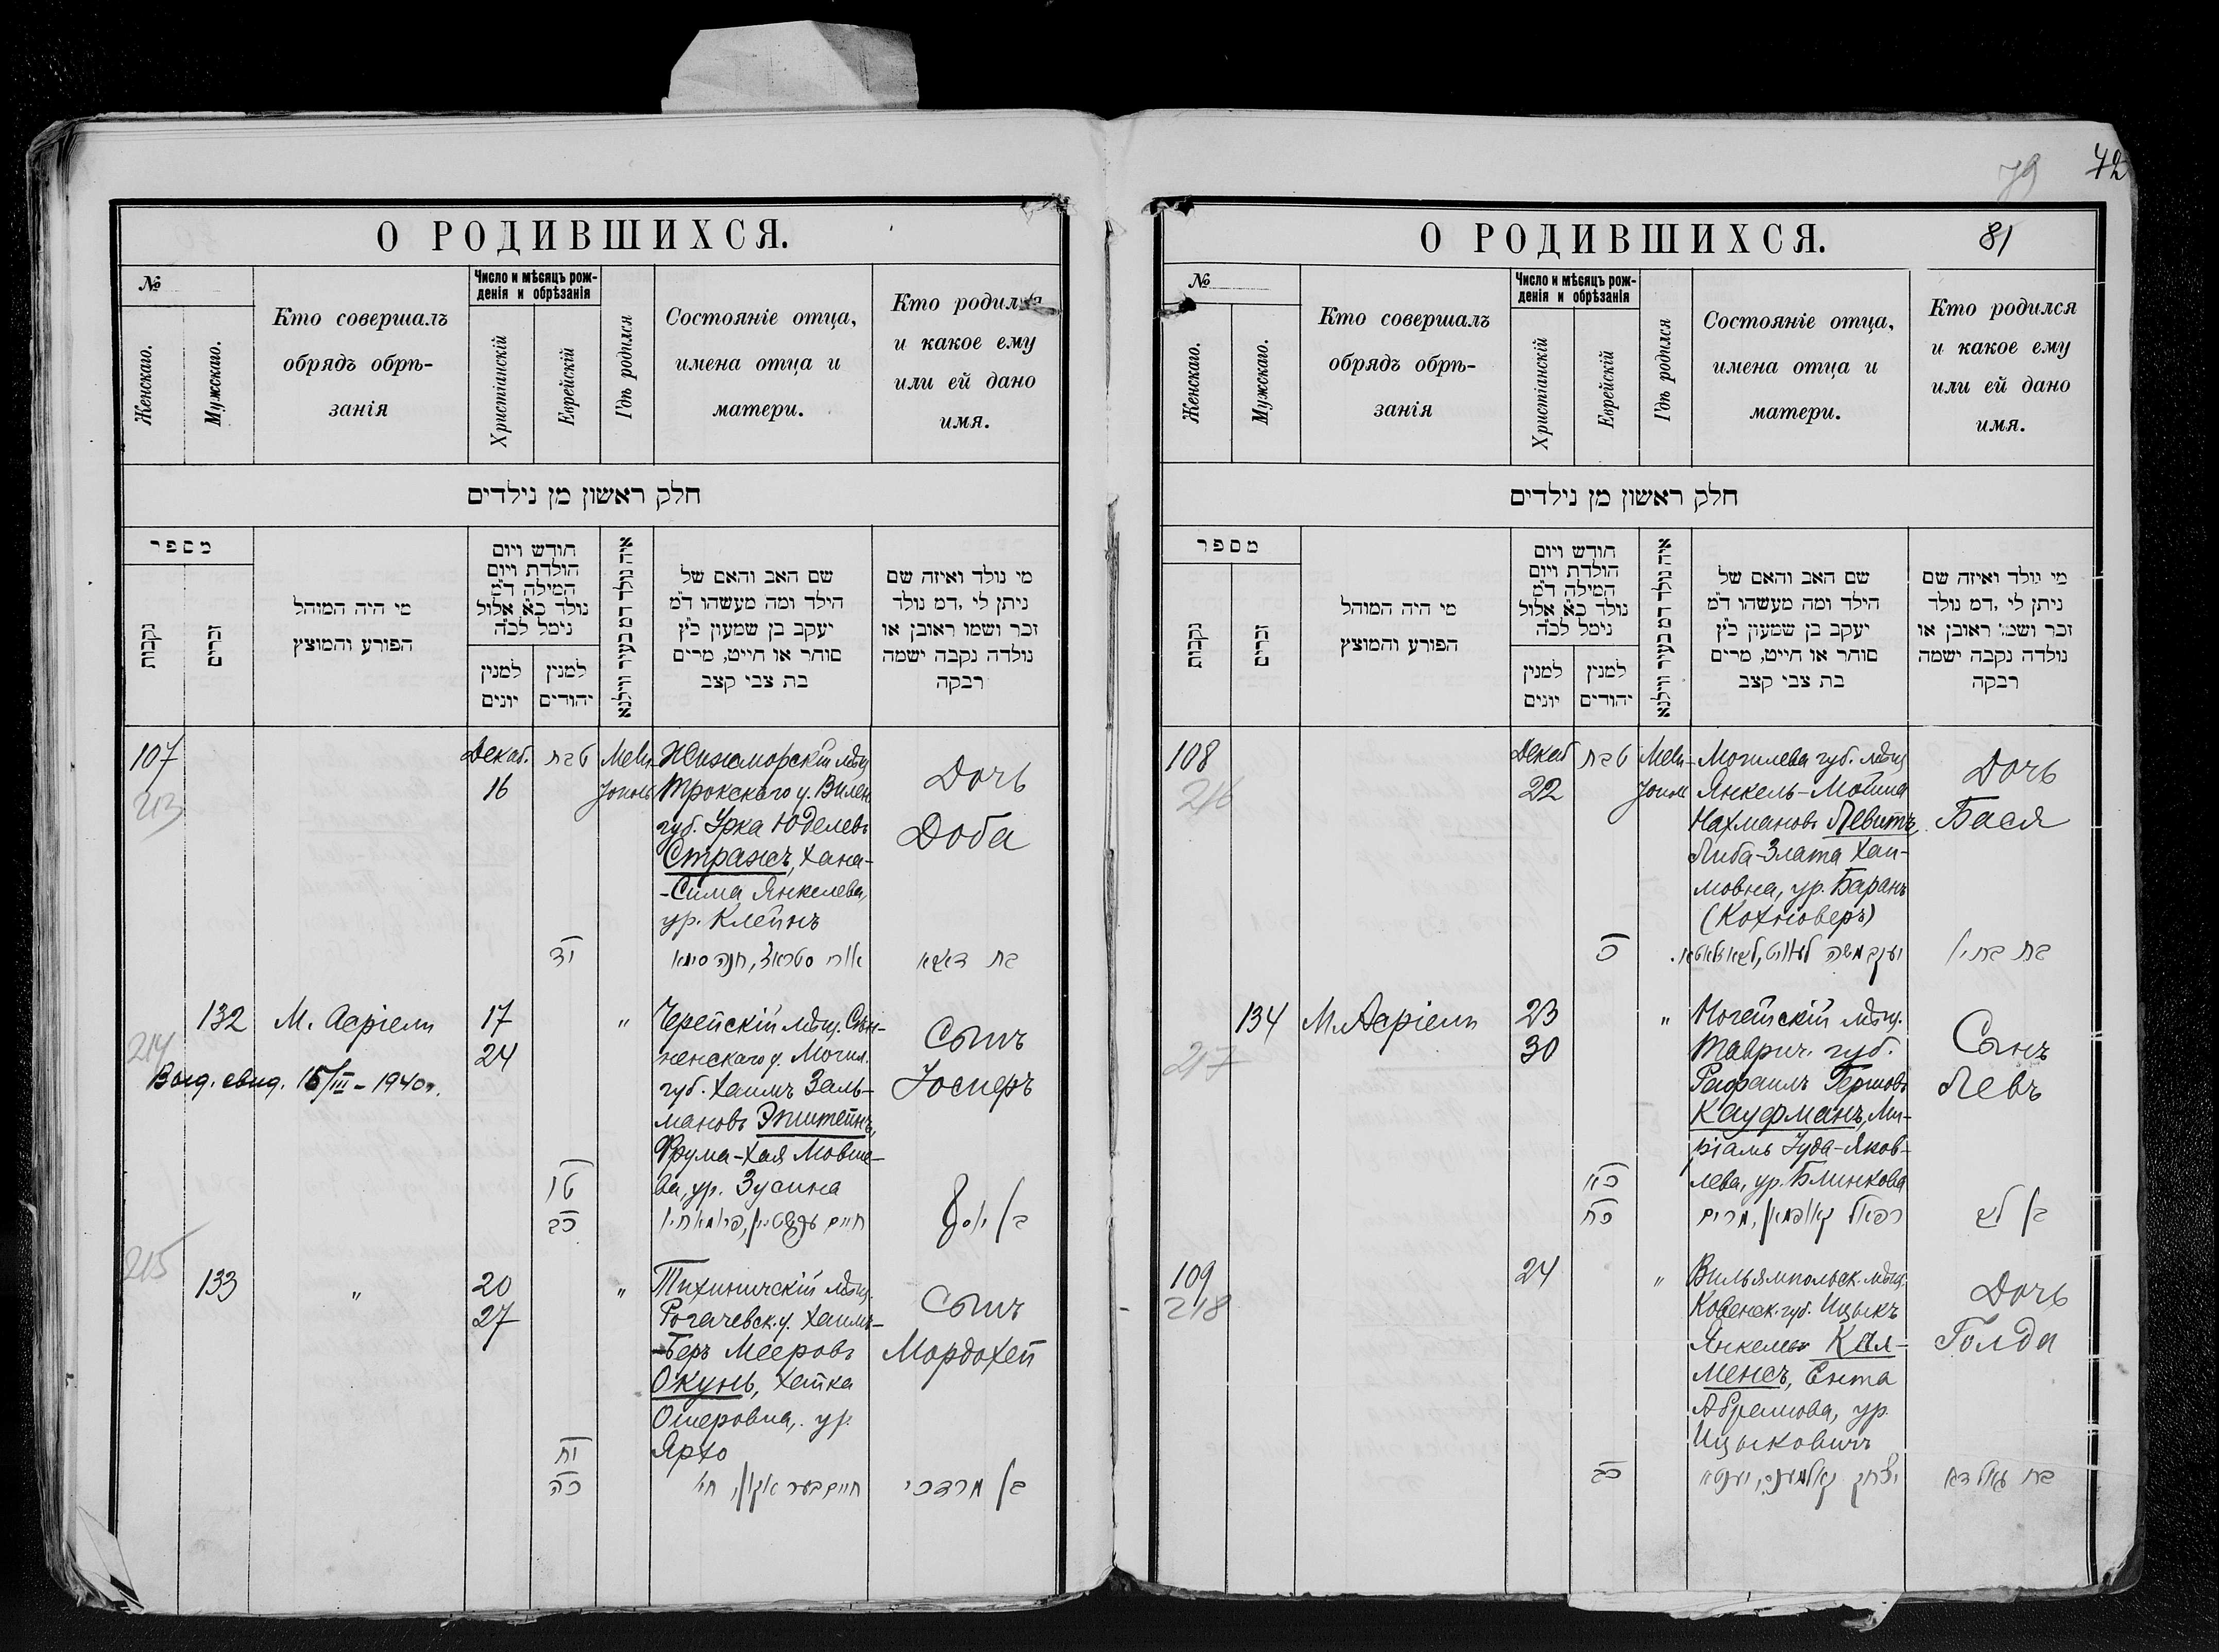 79 42
О РОДИВШИХСЯ.
№
Женскаго.
Мужскаго.
Кто совершалъ
обрядъ обрѣ-
занія
Число и мѣсяцъ рож-
денія и обрѣзанія
Христіанскій
Еврейскій
Гдѣ родился
Состояніе отца,
имена отца и
матери.
Кто родился
и какое ему
или ей дано
имя.
חלק ראשון מן נילדים
מספר
נקבות
זכרים
מי היה המוהל
הפורע והמוצץ
חודש ויום
הולדת ויום
המילה ד״מ
נולד כ״א אלול
נימל לכ״ה
למנין
יונים
למנין
יהודים
איה נולד דמ בעיר ווילנא
שם האב והאם של
הילד ומה מעשהו ד״מ
יעקב בן שמעון כ״ץ
סוחר או חייט, מרים
בת צבי קצב
מי נולד ואיזה שם
ניתן לי ,דמ נולד
זכר ושמו ראובן או
נולדה נקבה ישמה
רבקה
107
213
Декаб.
16
טבת
Мели-
тополь
Жижморскій мѣщ.
Трокскаго у. Вилен.
губ. Урка Юделевъ
Стражъ, Хана-
-Сима Янкелева,
ур. Клейнъ
Дочь
Доба
יד
132
214
М. Асріели
17
24
"
Черейскій мѣщ. Сѣн-
ненскаго у. Могил.
губ. Хаимъ Заль-
мановъ Эпштейнъ,
Фрума-Хая Мовше-
ва, ур. Зусина
Сынъ
Іосифъ
Выд. свид. 15/III – 1940 г.
טו
כב
בן יוסף
215
133
"
20
27
"
Тихиничскій мѣщ.
Рогачевск. у. Хаимъ-
-Беръ Мееровъ
Окунь, Хайка
Ошеровна, ур.
Ярхо
Сынъ
Мордохей
יח
כה
חיים בער אקון, חי'
בן מרדכי
О РОДИВШИХСЯ.
81
№
Женскаго.
Мужскаго.
Кто совершалъ
обрядъ обрѣ-
занія
Число и мѣсяцъ рож-
денія и обрѣзанія
Христіанскій
Еврейскій
Гдѣ родился
Состояніе отца,
имена отца и
матери.
Кто родился
и какое ему
или ей дано
имя.
חלק ראשון מן נילדים
מספר
נקבות
זכרים
מי היה המוהל
הפורע והמוצץ
חודש ויום
הולדת ויום
המילה ד״מ
נולד כ״א אלול
נימל לכ״ה
למנין
יונים
למנין
יהודים
איה נולד דמ בעיר ווילנא
שם האב והאם של
הילד ומה מעשהו ד״מ
יעקב בן שמעון כ״ץ
סוחר או חייט, מרים
בת צבי קצב
מי נולד ואיזה שם
ניתן לי ,דמ נולד
זכר ושמו ראובן או
נולדה נקבה ישמה
רבקה
108
216
Декаб
22
טבת
Мели-
топол
Могилева губ. мѣщ.
Янкель-Мойша
Нахмановъ Левитъ,
Либа-Злата Хаи-
мовна, ур. Баранъ
Дочь
Бася
כ
134
217
М. Асріели
23
30
"
Ногайскій мѣщ.
Таврич. губ.
Рафаилъ Гершовъ
Кауфманъ, Ми-
ріамъ Іуда-Яков-
лева, ур. Блинкова
Сынъ
Левъ
כא
כח
רפאל קאופמאן, מרים
בן לב
109
218
24
"
Вильямпольск. мѣщ.
Ковенск. губ. Ицыкъ
Янкелев Кал-
менсъ, Ента
Абрамова, ур.
Ицыковичъ
Дочь
Голда
כב
יצחק קאלמענס, יענטא
בת גאלדא